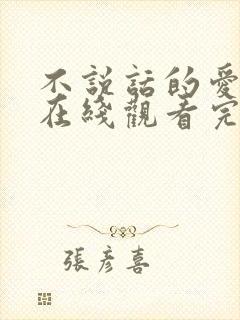 不説話的愛
在綫觀看完
張彥喜